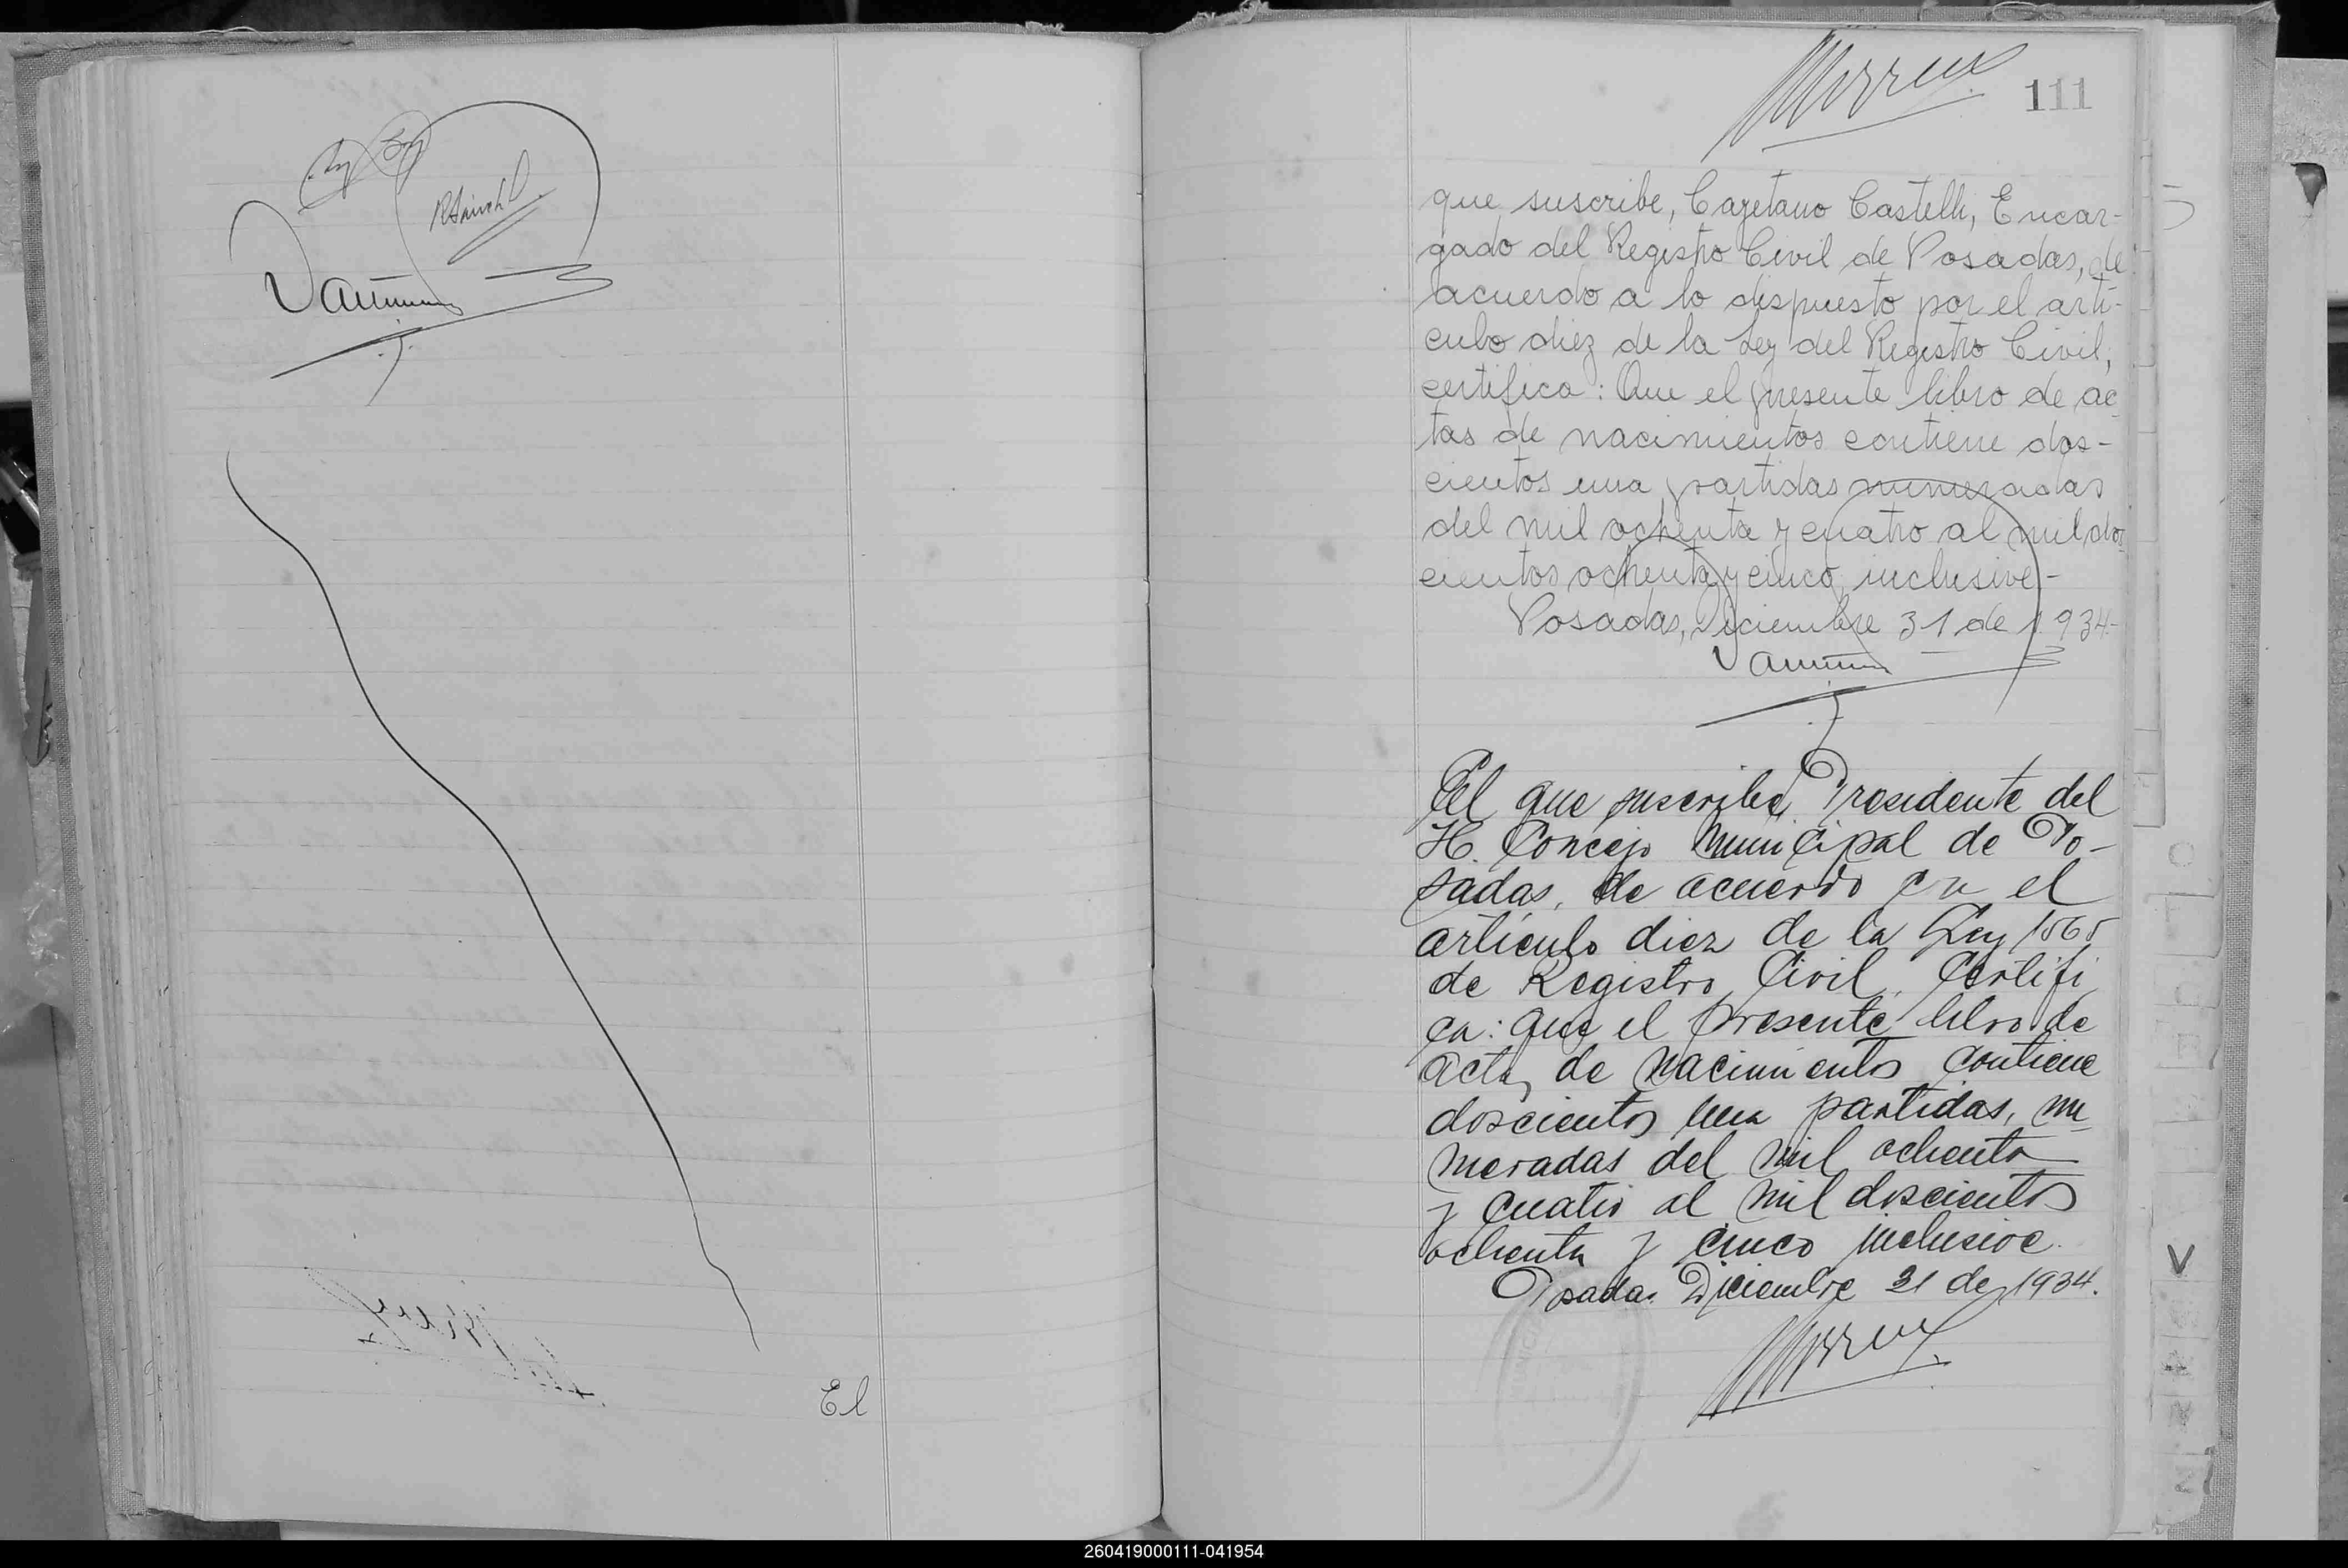 El
111
que suscribe, Cayetano Castelli, Encar-
gado del Registro Civil de Posadas, de
acuerdo a lo dispuesto por el arti-
culo diez de la Ley del Registro Civil,
certifica: Que el presente libro de ac
tas de nacimientos contiene dos-
cientos una partidas numeradas
del mil ochenta y cuatro al mil dos-
cientos ochenta y cinco inclusive.-
Posadas, Diciembre 31 de 1934.-
El que suscribe, Presidente del
H. Concejo Municipal de Po-
sadas, de acuerdo con el
artículo diez de la Ley 1565
de Registro Civil, Certifi
ca: que el presente libro de
actas de nacimientos contiene
doscientos una partidas, nu
meradas del mil ochenta
y cuatro al mil doscientos
ochenta y cinco inclusive.
Posadas Diciembre 31 de 1934.
V
260419000111-041954